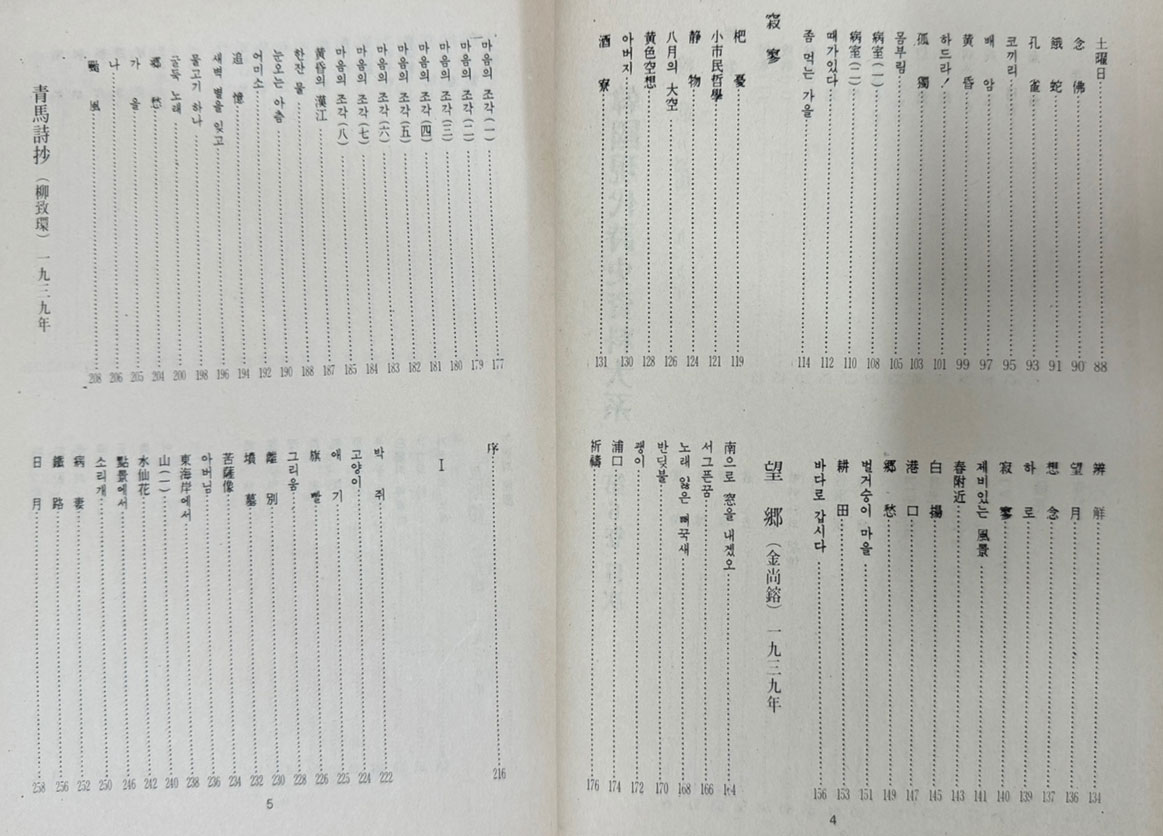 土曜日 88
念佛 90
餓蛇 91
孔雀 93
코끼리 95
배암 97
黃昏 99
하드라! 101
孤獨 103
몸부림 105
病室(一) 108
病室(二) 110
때가있다 112
좀 먹는 가을 114
寂寥
杞憂 119
小市民哲學 121
靜物 124
八月의 大空 126
黃色空想 128
아버지 130
酒寮 131
辨解 134
望月 136
想念 137
하로 139
寂寥 140
제비있는 風景 141
春附近 143
白楊 145
港口 147
鄕愁 149
벌거숭이 마을 151
耕田 153
바다로 갑시다 156
望鄕 (金尙鎔) 一九三九年
南으로 窓을 내겠오 164
서그픈꿈 166
노래 잃은 뻐꾹새 168
반딧불 170
괭이 172
浦口 174
祈禱 176
4
마음의 조각(一) 177
마음의 조각(二) 179
마음의 조각(三) 180
마음의 조각(四) 181
마음의 조각(五) 182
마음의 조각(六) 183
마음의 조각(七) 184
마음의 조각(八) 185
黃昏의 漢江 187
한잔 물 188
눈오는 아츰 190
어미소 192
追憶 194
새벽 별을 잊고 196
물고기 하나 198
굴둑 노래 200
鄕愁 204
가을 205
나 206
颱風 208
靑馬詩抄 (柳致環) 一九三九年
序 216
I
박쥐 222
고양이 224
애기 225
旗빨 226
그리움 228
離別 230
墳墓 232
菩薩像 234
아버님 236
東海岸에서 238
山(一) 240
水仙花 242
點景에서 246
소리개 250
病妻 252
鐵路 256
日月 258
5